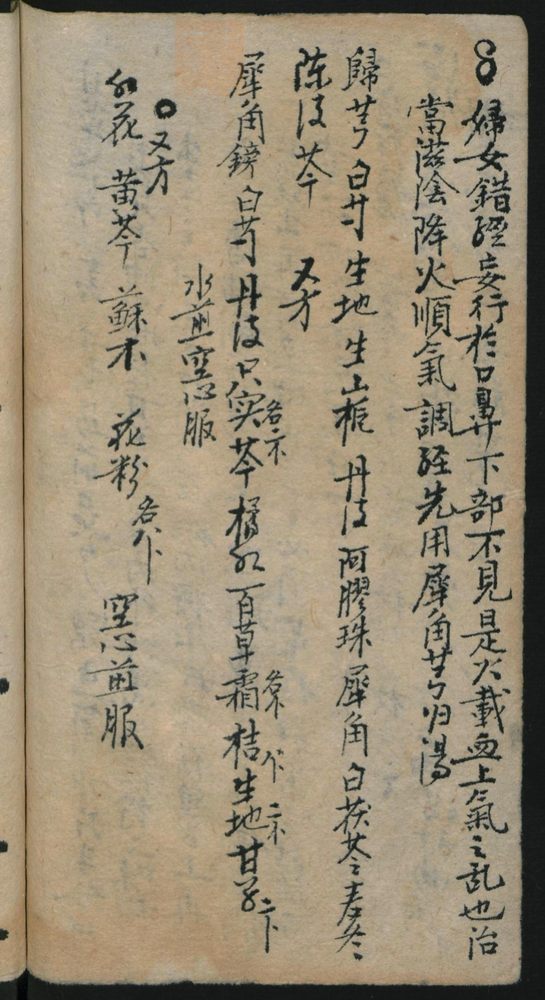 婦女錯經妄行於口鼻下部不見是火載血上氣之乱也治
當滋陰降火順氣調經先用犀角芎归湯
歸芎白芍生地生山梔丹皮阿膠珠犀角白茯苓麦冬
陈皮芩
又方
犀角鎊白芍丹皮只实各一芩橘红百草霜桔生地甘草
水煎空心服
又方
红花黃芩蘇木花粉各 空心煎服